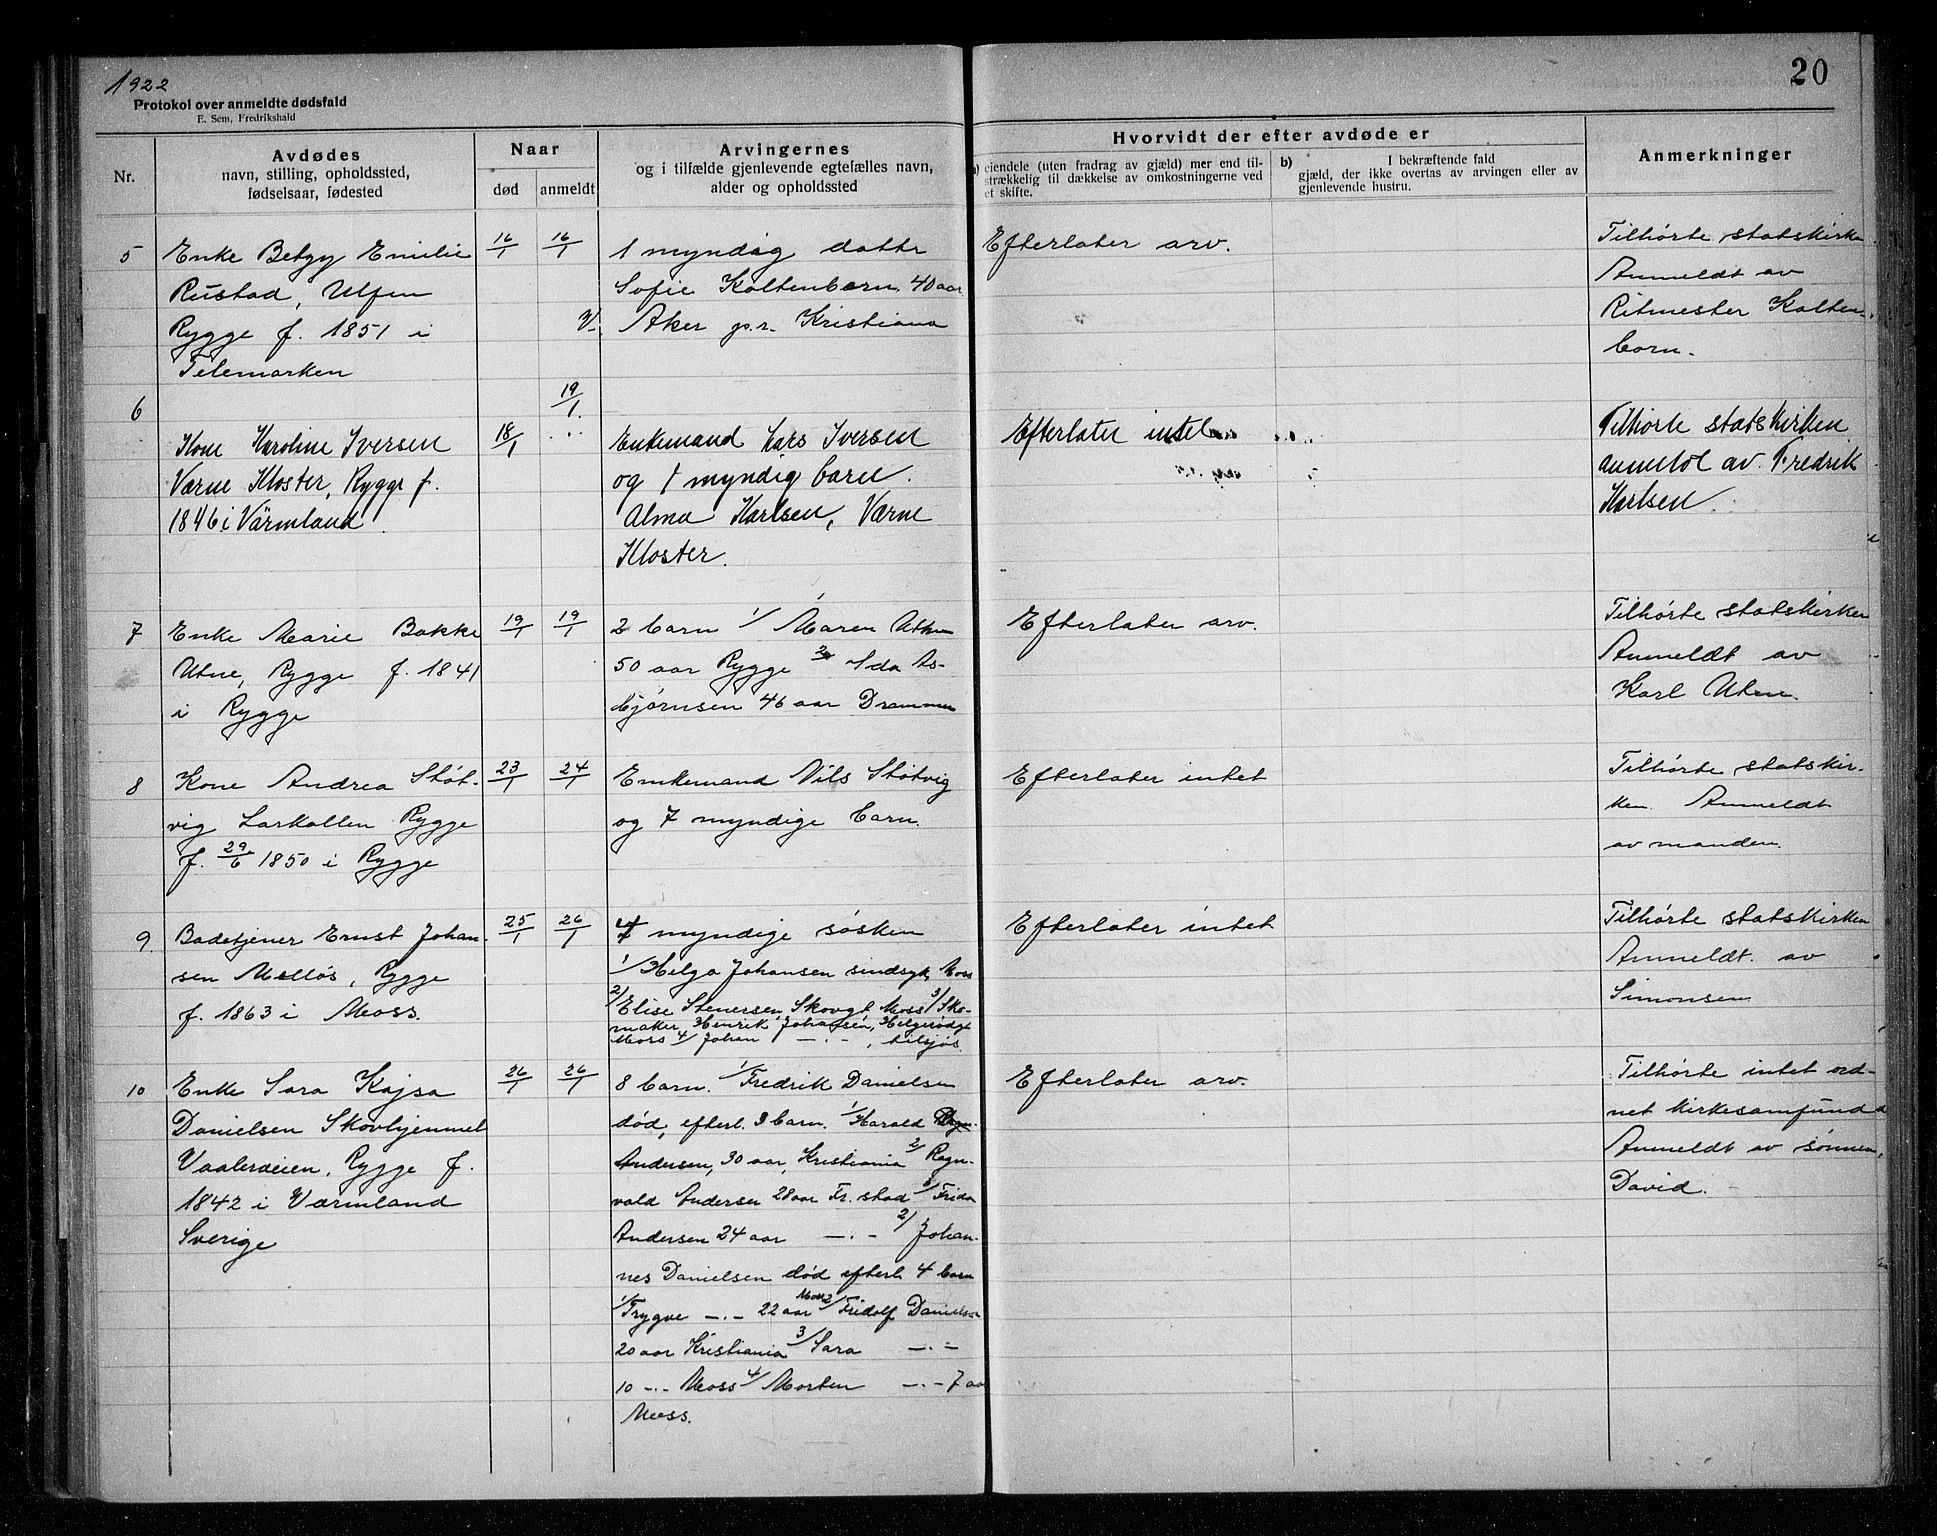 1922
20
Protokol over anmeldte dødsfald
E. Sem, Fredrikshald
Nr.
Avdødes
navn, stilling, opholdssted,
fødselsaar, fødested
Naar
død
anmeldt
Arvingernes
og i tilfælde gjenlevende egtefælles navn,
alder og opholdssted
Hvorvidt der efter avdøde er
eiendele (uten fradrag av gjæld) mer end til-
strækkelig til dækkelse av omkostningerne ved
et skifte.
b) I bekræftende fald
gjæld, der ikke overtas av arvingen eller av
gjenlevende hustru.
Anmerkninger
5
Enke Betzy Emilie
Rustad, Ulfen
Rygge f. 1851 i
Telemarken
16/1
16/1
V.
1 myndig datte
Sofie Koltenborn 40 aar
Aker p.r. Kristiana
Efterlater arv.
Tilhørte statskirke
Anmeldt av
Ritmester Kolten-
born.
6
Kone Karoline Iversen
Værne Kloster, Rygge f.
1846 i Värmland.
18/1
19/1.
Enkemand Lars Iversen
og 1 myndig barn.
Alma Karlsen, Værne
Kloster.
Efterlater intet
Tilhørte statskirken
anmeldt av Fredrik
Karlsen.
7
Enke Marie Bakke
Utne, Rygge f. 1841
i Rygge
19/1
19/1
2 barn 1/ Maren Utne
50 aar Rygge 2/ Ida As-
bjørnsen 46 aar Drammen
Efterlater arv.
Tilhørte statskirken
Anmeldt av
Karl Utne.
8
Kone Andrea Støt-
vig Larkollen Rygge
f. 29/6 1850 i Rygge
23/1
24/1
Enkemand Nils Støtvig
og 7 myndige barn.
Efterlater intet
Tilhørte statskir-
ken. Anmeldt
av manden.
9.
Badetjener Ernst Johan-
sen Melløs, Rygge
f. 1863 i Moss.
25/1
26/1
4 myndige søsken
1/ Helga Johansen sindsyk, Moss
2/ Elise Stenersen, Skovgt. Moss 3/ Sko-
maker Henrik Johansen, Helgerødgt
Moss 4/ Johan —.— , tilsjøs.
Efterlater intet
Tilhørte statskirken
Anmeldt av
Simonsen
10
Enke Sara Kajsa
Danielsen Skovhjemmet
Vaalerveien, Rygge f.
1842 i Værmland
Sverige
26/1
26/1
8 barn. 1/ Fredrik Danielsen
død, efterl. 3 barn. 1/ Harald
Andersen, 30 aar, Kristiania 2/ Ragn-
vald Andersen 28 aar Fr.stad 3/ Frida
Andersen 24 aar —.— 2/ Johan-
nes Danielsen død efterl. 4 barn
1/ Trygve —.— 22 aar Moss 2/ Fridolf Danielsen
20 aar Kristiania 3/ Sara —.—
10 —.— Moss 4/ Morten —.— 7 aar
Moss.
Efterlater arv.
Tilhørte intet ord-
net kirkesamfund
Anmeldt av sønnen,
David.